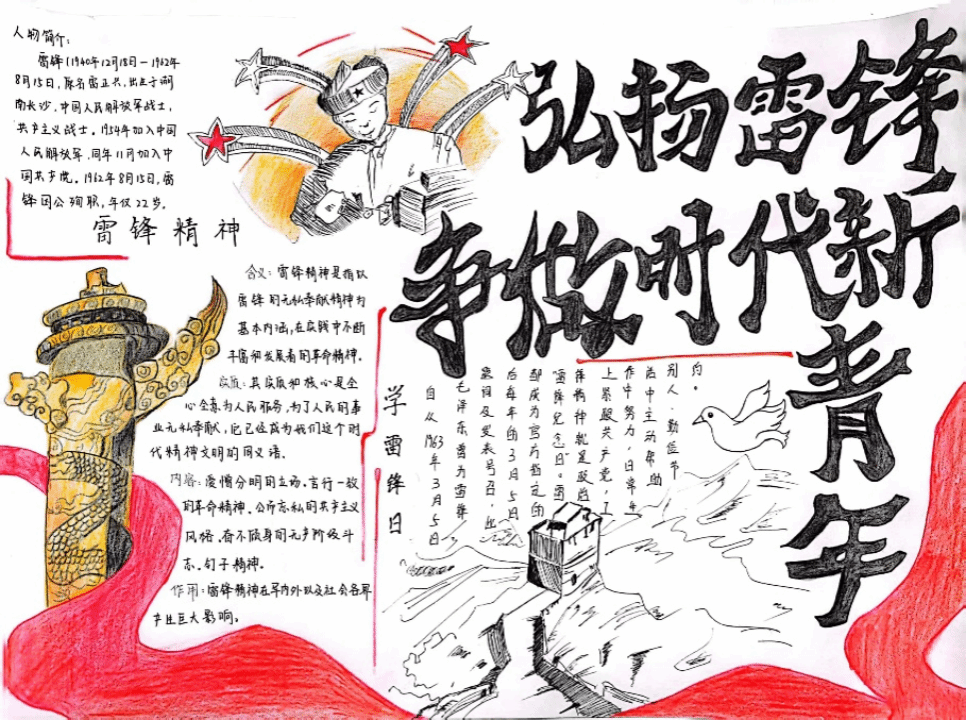 弘扬雷锋
争做时代新
青年
人物简介:
雷锋(1940年12月18日—1962年
8月15日,原名雷正兴,出生于湖
南长沙,中国人民解放军战士,
共产主义战士。1954年加入中国
人民解放军,同年11月加入中
国共产党。1962年8月15日,雷
锋因公殉职,年仅22岁。
雷锋精神
含义:雷锋精神是指以
雷锋的无私奉献精神为
基本内涵,在实践中不断
丰富和发展着的革命精神。
实质:其实质和核心是全
心全意为人民服务,为了人民的事
业无私奉献,它已经成为我们这个时
代精神文明的同义语。
内容:爱憎分明的立场、言行一致
的革命精神、公而忘私的共产主义
风格、奋不顾身的无产阶级斗
志、钉子精神。
作用:雷锋精神在军内外以及社会各界
产生巨大影响。
学雷锋日
自从1963年3月5日
毛泽东曾为雷锋
题词及发表号召,此
后每年的3月5日
都成为官方指定的
"雷锋纪念日"。雷
锋精神就是政治
上紧跟共产党,工
作中努力,日常生
活中主动帮助
别人,勤俭节
约。